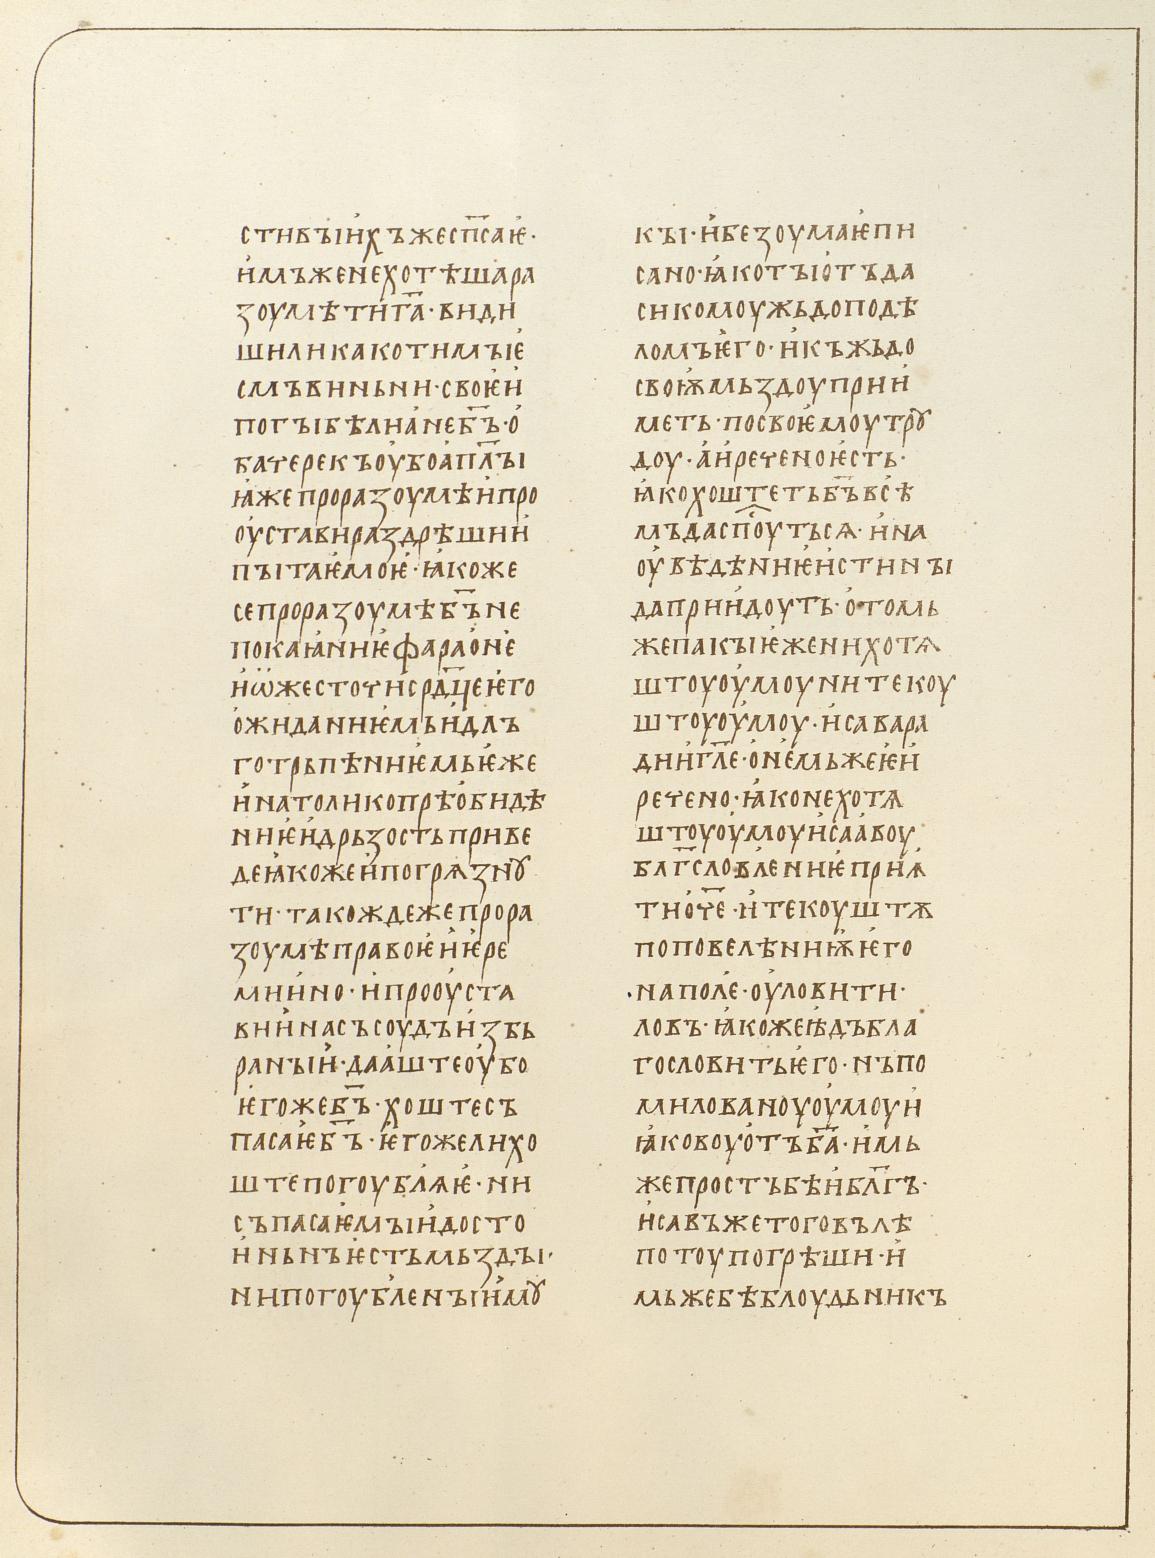 стивъıи́хъжесп҃саѥ·
и҆мъженехотѣшара
зоумѣти́г҃а·види́
шиликакотимъıѥ
смъвиньни·своѥи́
погъıбѣлиа́неб҃ъ·о́
бачерекъоу́боа́п҃лъı
ꙗ҆жепроразоумѣи҆про
оу́ставираздрѣшии҆
пъıтаѥ҆моѥ҆·ꙗ҆коже
сепроразоумѣб҃ъне
покаꙗ҆ниѥ҆фарао́не
и҆ѡ҆жесточи́срд҃цеѥ҆го
о҆жиданиѥ҆мьи҆длъ
готрьпѣниѥ҆мьѥ҆же
и҆натоликопрѣо́бидѣ
ниѥ҆и҆дрьзостьприве
деꙗ҆кожеи҆погрѧзнꙋ
ти·такождежепрора
зоумѣправоѥ҆и҆ѥ҆ре
мии́но·и҆прооу́ста
вии́насъсоудъи҆збь
ранъıи҆·даа́штеоу́бо
ѥ҆гожеб҃ъ·хоштесъ
пасаѥ҆б҃ъ·ѥ҆гожелихо
штепогоублꙗѥ҆·ни
съпасаѥ҆мъıи҆досто
и҆ньнъѥ҆стьмьздъı·
нипогоубленъıи҆мꙋ
къı·и҆безоумаѥ҆пи
сано·ꙗ҆котъıо́тъда
сикомоужьдоподѣ
ломъѥ҆го·и҆къжьдо
своѭ҆мьздоуприи҆
меть·посвоѥ҆моутрꙋ
доу·а҆и҆реченоѥ҆сть·
ꙗ҆кохоштетьб҃ъвсѣ
мъдасп҃оутьсѧ·и҆на
оу́вѣдѣниѥ҆и҆стинъı
даприи҆доуть·о҆томь
жепакъıѥ҆ženихотѧ
штоуоу́моунитекоу
штоуоу́моу·и҆савара
дии҆г҃ле·о҆не́мьжеѥ҆и҆
речено·ꙗ҆конехотѧ
штоуоу́моуи҆саа́воу
блг҃словлениѥ҆приꙗ҆
тио҆ч҃е·и҆текоуштѫ
поповелѣниѭ҆ѥ҆го
·наполе́·оу́ловити·
ловъ·ꙗ҆кожеѣ҆дъбла
гословитьѥ҆го·нъпо
милованоуоу́моуи҆
ꙗ҆ковоуо́тъб҃а·и҆мь
жепростъбѣи҆бл҃гъ·
и҆савъжетоговълѣ
потоупогрѣши·и҆
мьжебѣблоудьникъ